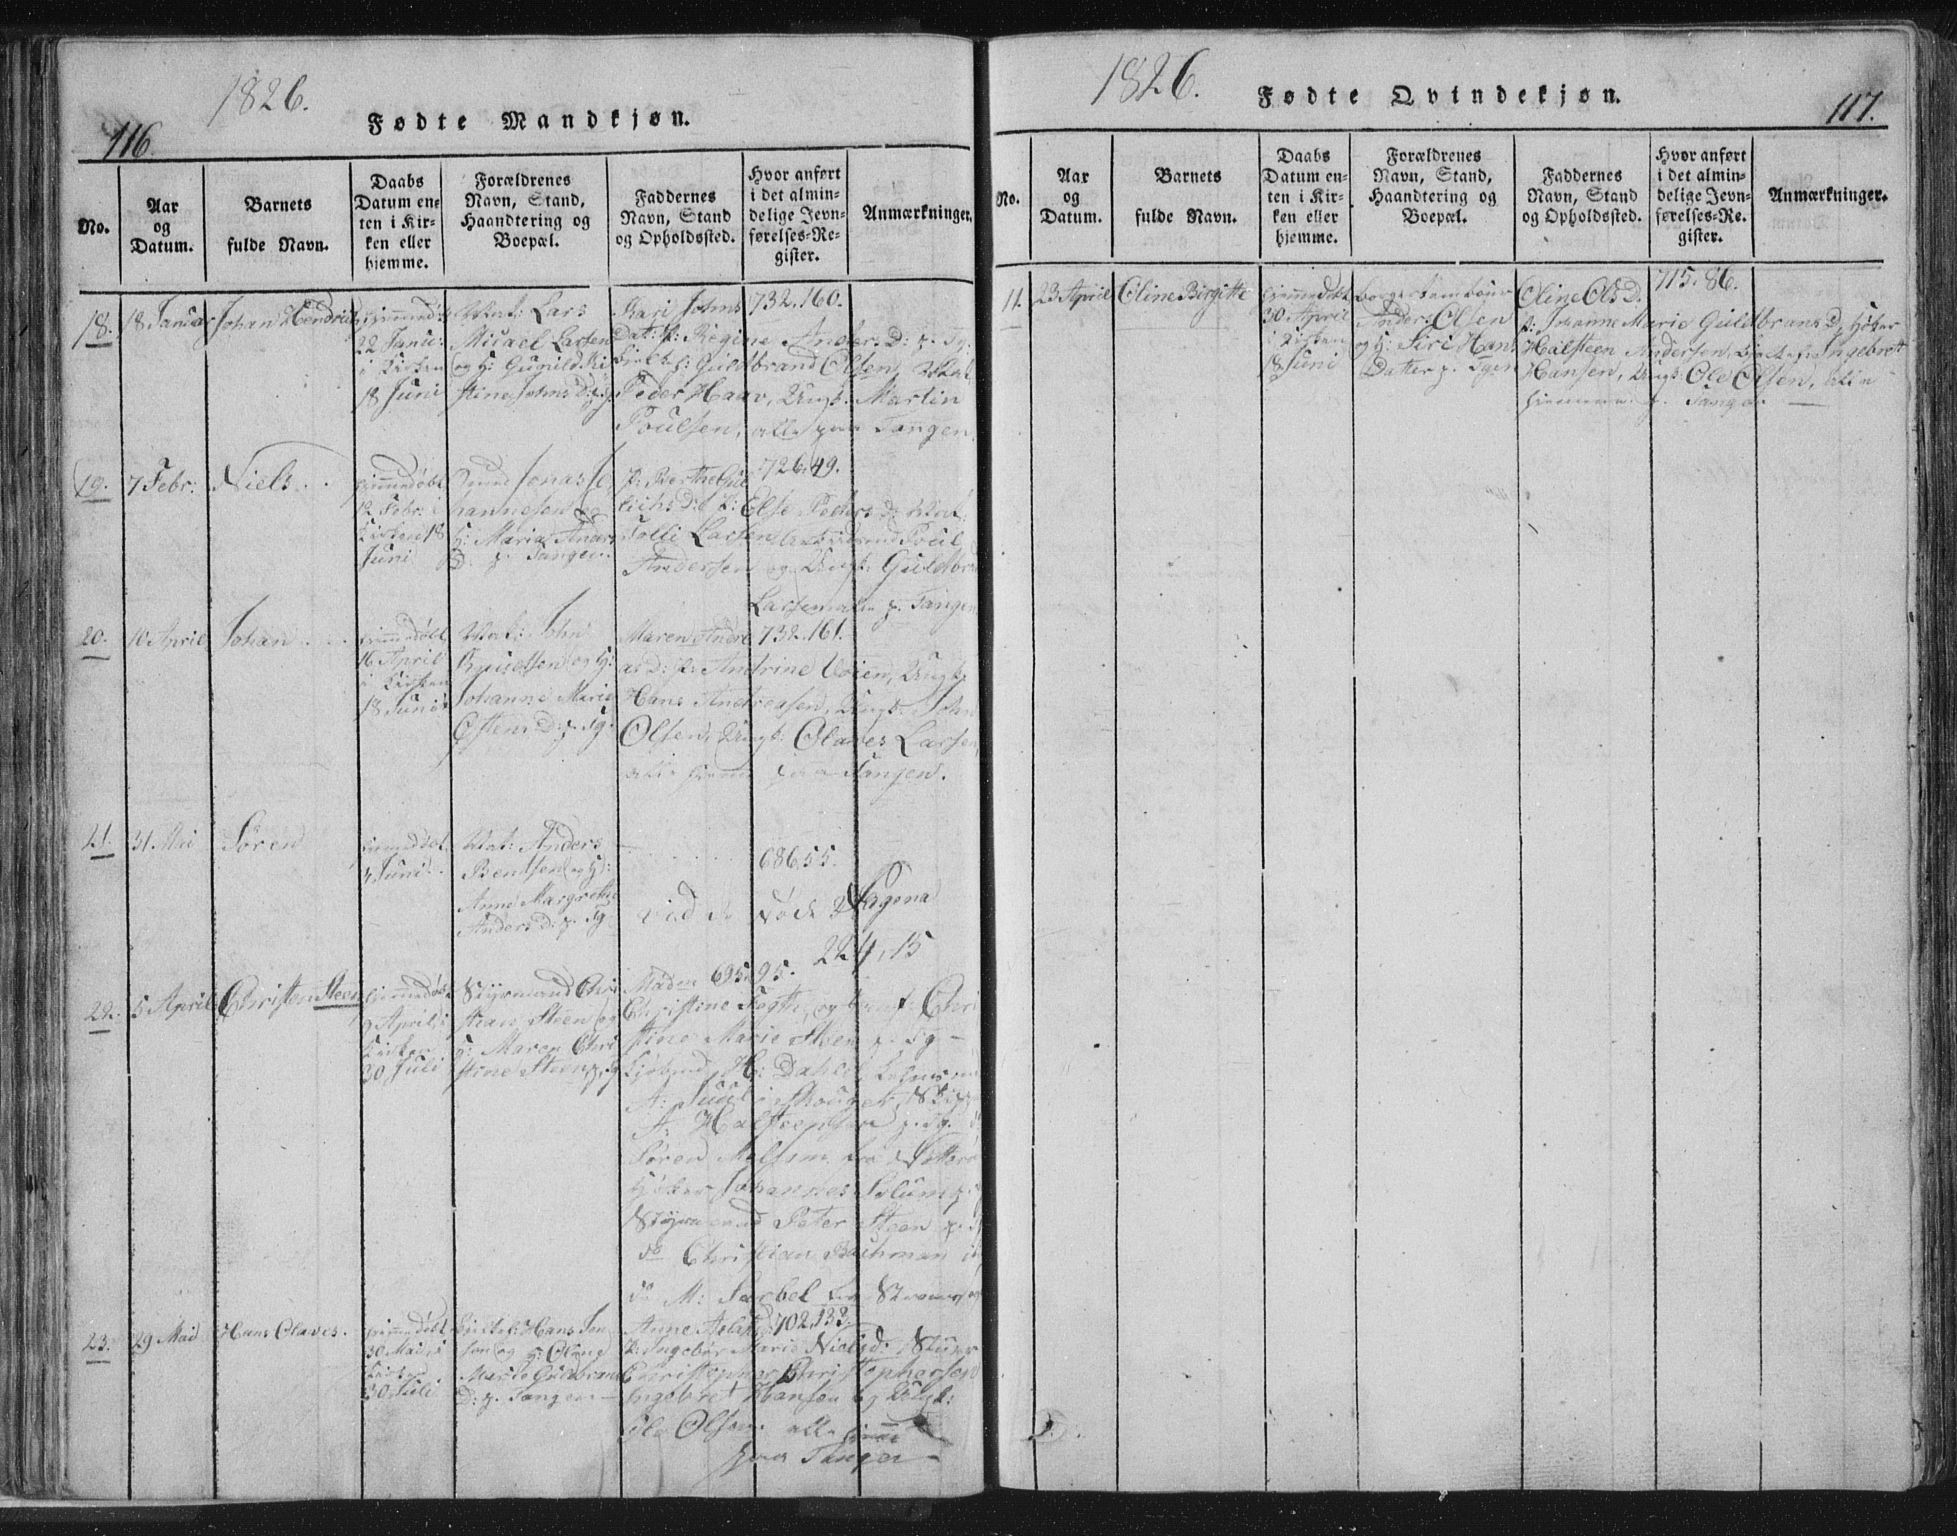 1826.
116.
Fødte Mandkjøn.
No.
Aar
og
Datum.
Barnets
fulde Navn.
Daabs
Datum en-
ten i Kir-
ken eller
hjemme.
Forældrenes
Navn, Stand,
Haandtering og
Boepæl.
Faddernes
Navn, Stand
og Opholdssted.
Hvor anført
i det almin-
delige Jevn-
førelses-Re-
gister.
Anmærkninger.
18.
18 Januar
Johan Hendrich
22 Janu:
i Kirken
18 Juni
Mat: Lars
Micael Larsen
og H: Gunild Ki
stine Johnsd: p. Tg.
Kari Johns
Dat: P: Regine Anders D: p. Tg.
Guldbrand Olsen, Mat.
Peder Haav, Ungk: Martin
Poulsen, alle paa Tangen.
732. 160.
19.
7 Febr:
Niels
hjemmedøbt
12 Febr: i
Kirken 18
Juni
Jonas Jo
hannesen og
H: Maria Anders
D. p. Tangen.
P: Berthe
P: Else Peders D: Mat:
Tolli Larsen, Poul
Andersen og Ungk: Guldbrand
Larsen alle p. Tangen
726. 49.
20.
10 April
Johan
hjemmedøbt
16 April
i Kirken
18 Juni
Mat: John
Knudsen og H:
Johanne Marie
Ostens D: p. Tg.
Maren Andre
as D: P: Andrine Ungk:
Hans Andreasen, Ungk: John
Olsen, Ungk: Olaves Larsen,
alle hjemme paa Tangen.
732. 161.
21.
31. Mai
Søren
hjemmedøbt
4 Juni
Mat: Anders
Bentsen og H:
Anne Margrethe
Anders D: p. Tg
686. 55.
vid. de døde Pagina
224, 15
22.
5 April
Christen Steen
hjemmedøbt
9 April, i
Kirken
30 Juli
Styrmand Chri
stian Steen og
H: Maren Chri
stine Steen p. Tg
Madm
Christine og Jomf: Chri
stine Marie Steen p. Tg
H: Dahl
A: Juul i Skouger, Skip
A: Halsteensen p. Tg.
Søren
Johannes Solum p.
Styrmand Peter Steen p.
do Christian Bachman
do M: Sørbel
695. 95.
23.
29 Mai
Hans Olaves.
hjemmedøbt
30 Mai, i
Kirken
30 Juli
Hans Jen
sen og H: Oline
Marie Guldbrands
D: p. Tangen
Anne
P: Ingebor Marie Nielsd:
Christopher Christophersen
Ingebret Hansen og Ungk:
Ole Olsen alle hjemme
paa Tangen
702. 133.
1826.
117.
Fødte Qvindekjøn.
No.
Aar
og
Datum.
Barnets
fulde Navn.
Daabs
Datum en-
ten i Kir-
ken eller
hjemme.
Forældrenes
Navn, Stand,
Haandtering og
Boepæl.
Faddernes
Navn, Stand
og Opholdssted.
Hvor anført
i det almin-
delige Jevn-
førelses-Re-
gister.
Anmærkninger.
11.
23 April
Oline Birgitte
hjemmedøbt
30 April
i Kirken
18 Juni
Anders Olsen
og H: Siri Hans
Datter p. Tgen
Oline Ols D.
P: Johanne Marie Guldbrans D,
Halsteen Andersen, Ingebret
Hansen, Ungk: Ole Olsen, alle
hjemme p. Tangen
715. 86.